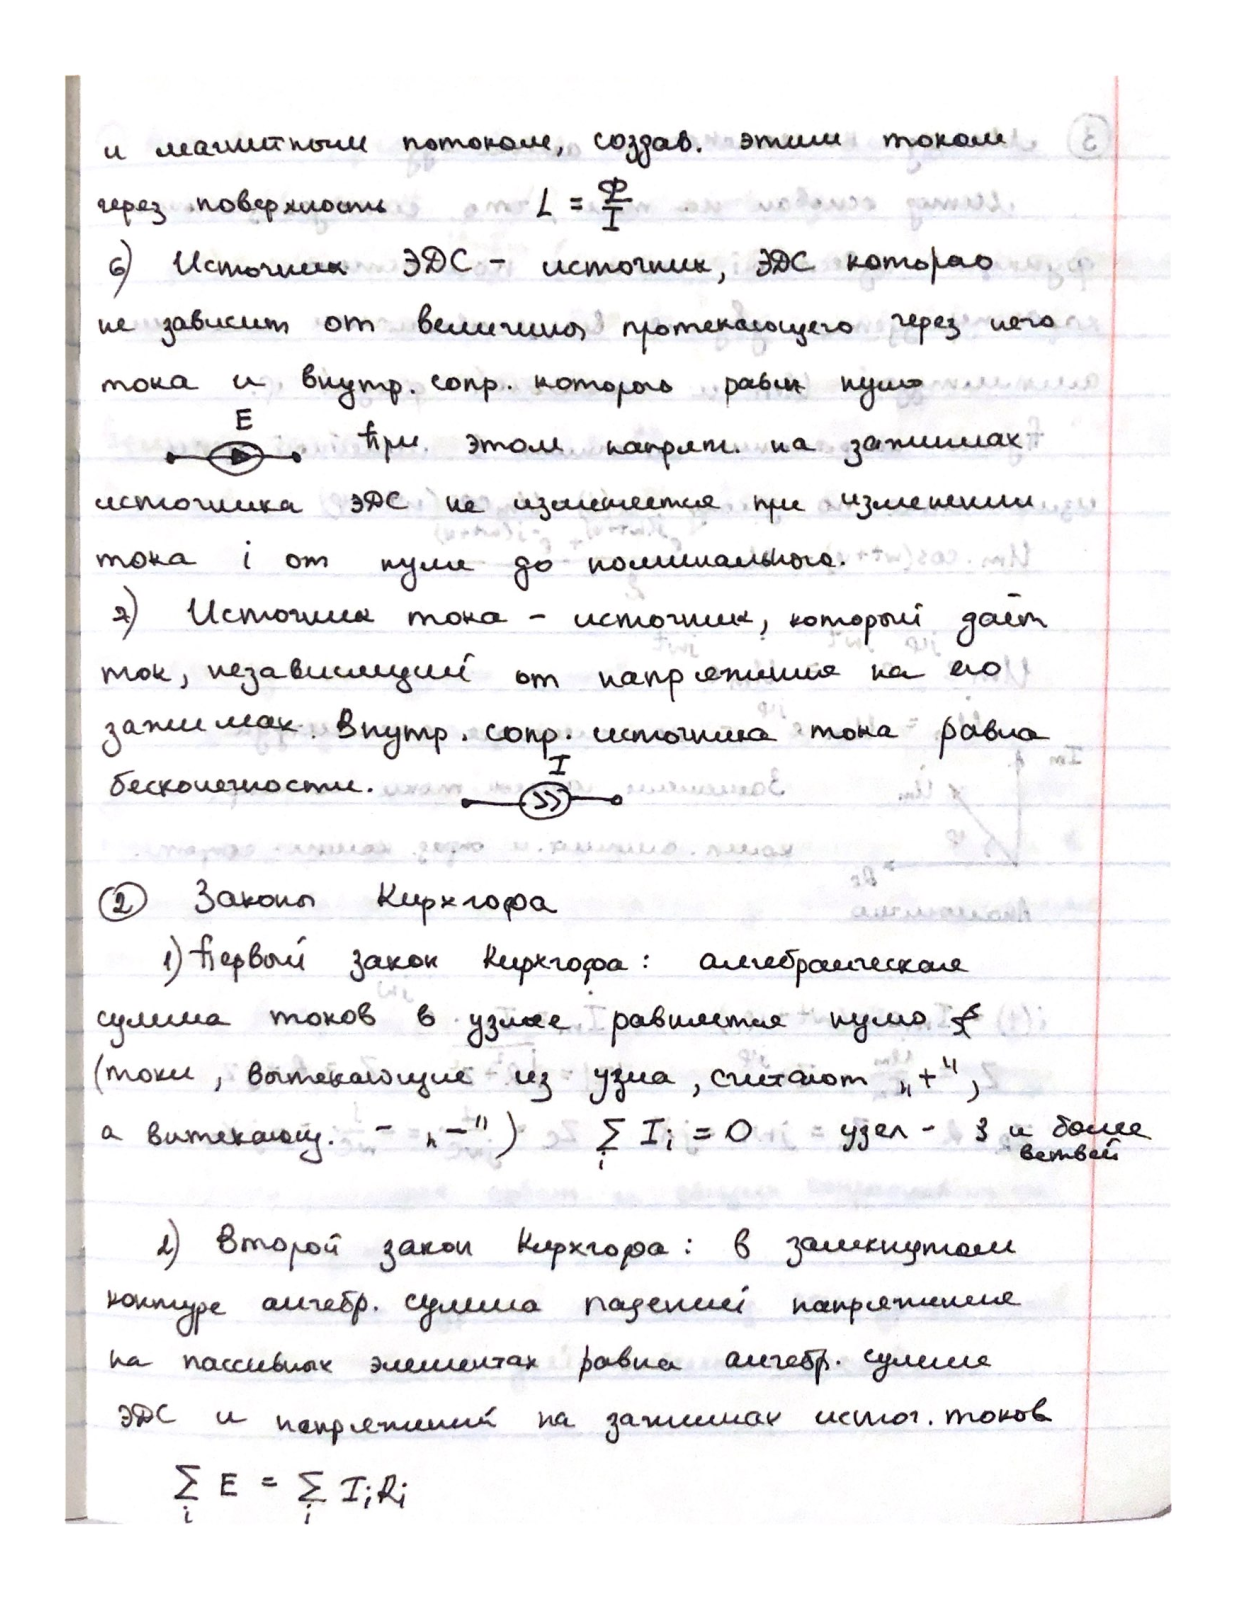 и магнитным потоком, создав. этим током
через поверхность L = Ф/I
6) Источник ЭДС - источник, ЭДС которого
не зависит от величины протекающего через него
тока и внутр. сопр. которого равен нулю
E При этом напряж. на зажимах
источника ЭДС не изменяется при изменении
тока i от нуля до номинального.
7) Источник тока - источник, который даёт
ток, независящий от напряжения на его
зажимах. Внутр. сопр. источника тока равна
бесконечности. I
② Законы Кирхгофа
1) Первый закон Кирхгофа: алгебраическая
сумма токов в узле равняется нулю
(токи, вытекающие из узла, считают „+“,
а витекающ. - „-“) ∑i Ii = 0 узел - 3 и более
ветвей
2) Второй закон Кирхгофа: в замкнутом
контуре алгебр. сумма падений напряжения
на пассивных элементах равна алгебр. сумме
ЭДС и напряжений на зажимах источ. токов
∑i E = ∑i IiRi